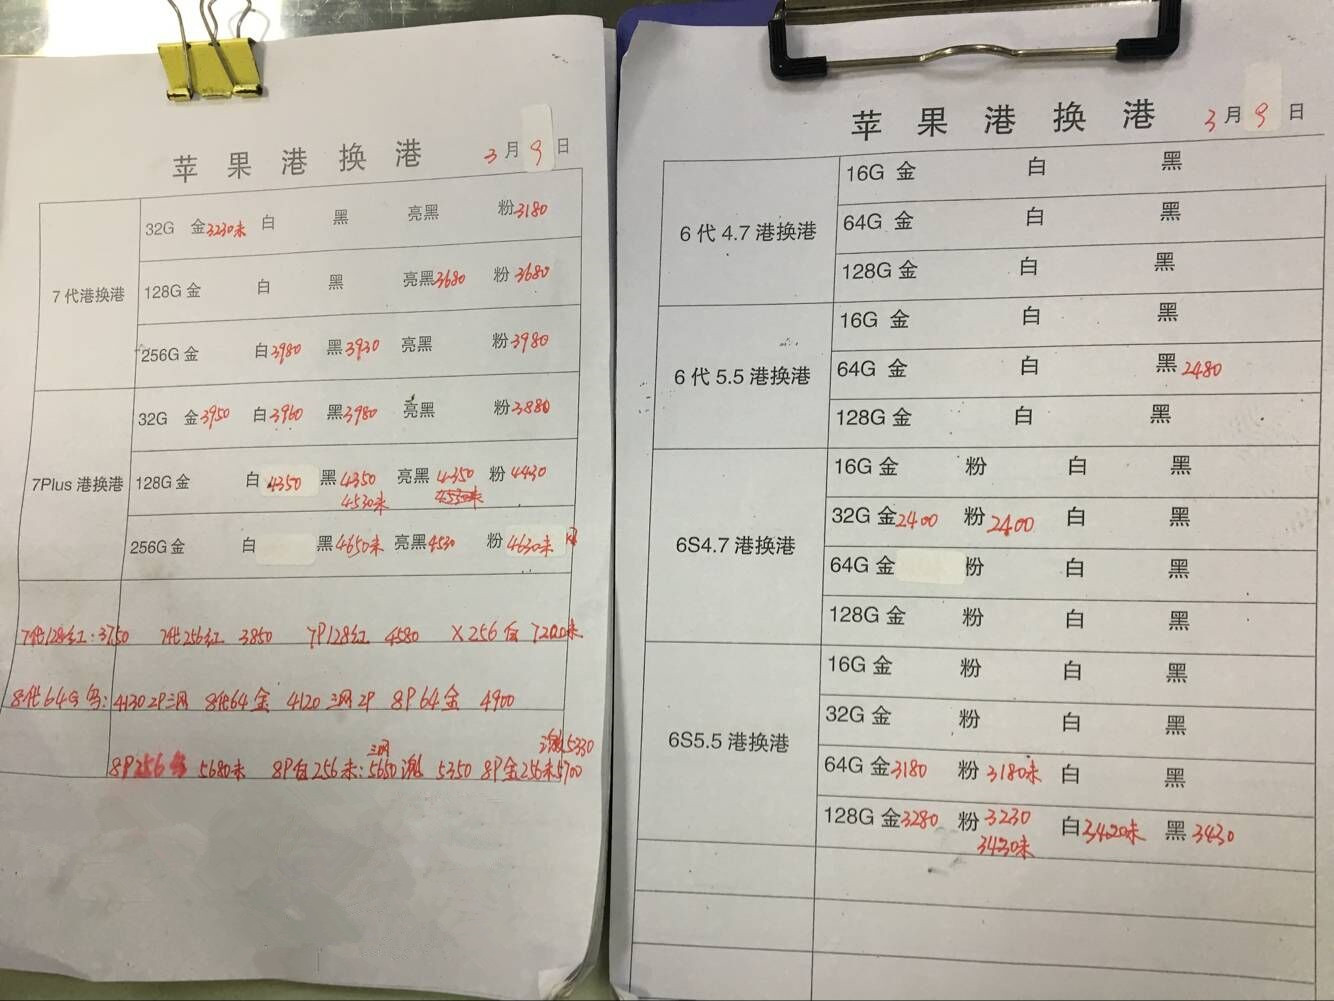 苹果港换港 3月9日
7代港换港
32G 金3230未 白 黑 亮黑 粉3180
128G 金 白 黑 亮黑3680 粉3680
256G 金 白3980 黑3930 亮黑 粉3980
7Plus 港换港
32G 金3950 白3960 黑3980 亮黑 粉3880
128G 金 白4350 黑4350 亮黑4350 粉4430
4530未 4530未
256G 金 白 黑4650未 亮黑4530 粉4630未
7代128红：3750 7代256红 3850 7P128红 4580 X256白 7200未
8代64G 黑：4130 2P三网 8代64金 4120 三网2P 8P64金 4900
三网 5330
8P256 5680未 8P白256未：5650 5350 8P金256未5700
苹果港换港 3月9日
6代4.7港换港
16G 金 白 黑
64G 金 白 黑
128G 金 白 黑
6代5.5港换港
16G 金 白 黑
64G 金 白 黑2480
128G 金 白 黑
6S4.7港换港
16G 金 粉 白 黑
32G 金2400 粉2400 白 黑
64G 金 粉 白 黑
128G 金 粉 白 黑
6S5.5港换港
16G 金 粉 白 黑
32G 金 粉 白 黑
64G 金3180 粉3180未 白 黑
128G 金3280 粉3230 白3420未 黑3430
3430未